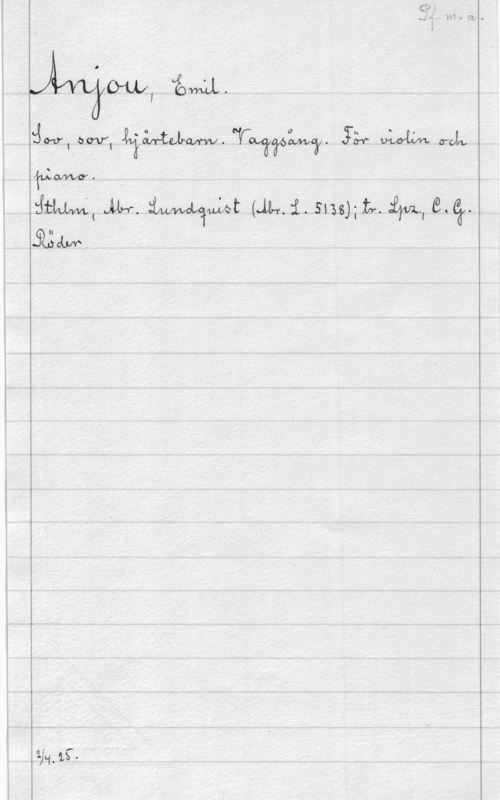 Pf. m. a.
Anjou, Emil.
Sov, sov, hjärtebarn. Vaggsång. För violin och
piano.
Sthlm, Abr. Lundquist (Abr. L. 5138); tr. Lpz., C. G.
Röder
2/4. 25.